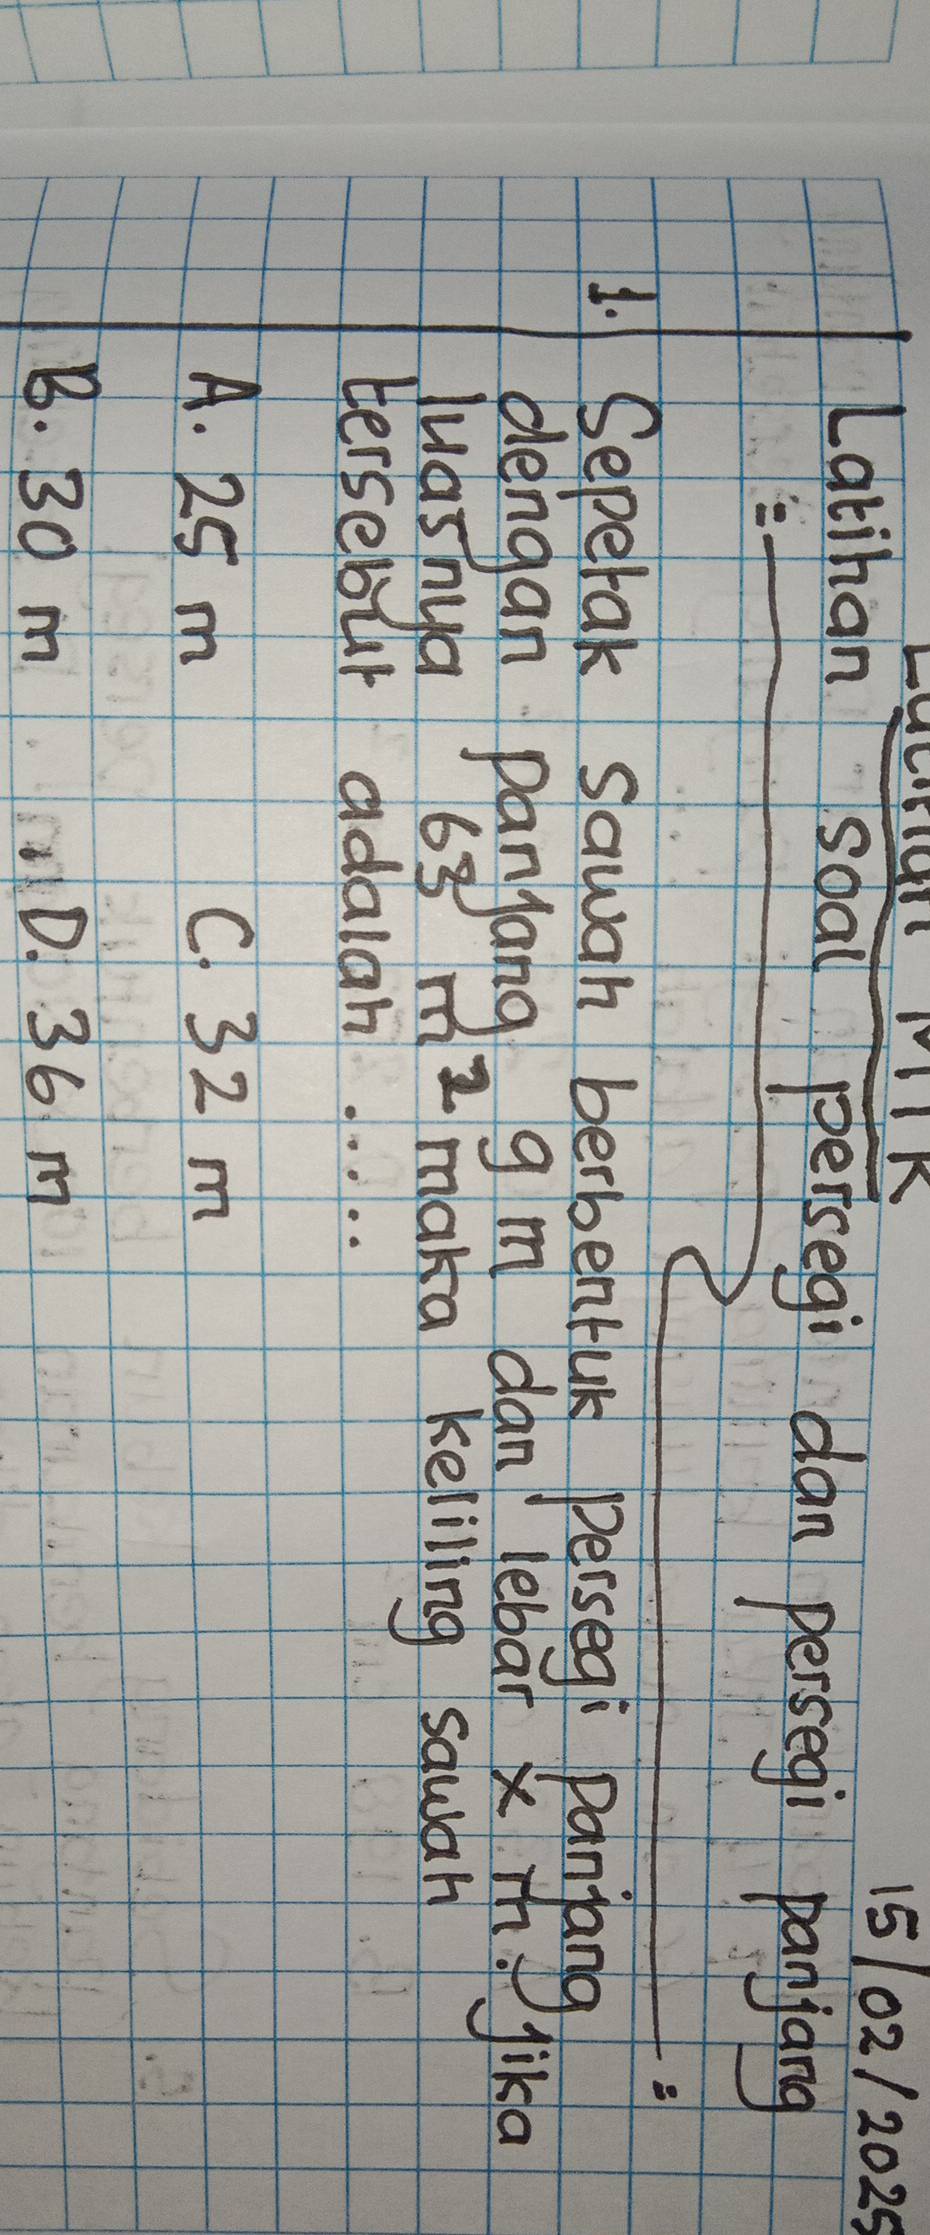 Latihan MTK
15/02/2025
Latihan soal persegi dan persegi panjang
1. Sepetak sawah berbentuk persegi panjang
dengan panjang 9 m dan lebar x m. Jika
luasnya 63 m² maka keliling sawah
tersebut adalah .....
A. 25 m C. 32 m
B. 30 m D. 36 m